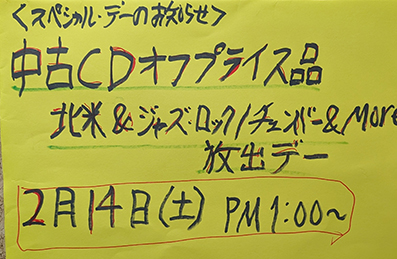 ＜スペシャル・デーのお知らせ＞
中古CDオフプライス品
北米&ジャズ・ロック/チェンバー&More
放出デー
2月14日(土) PM1:00～